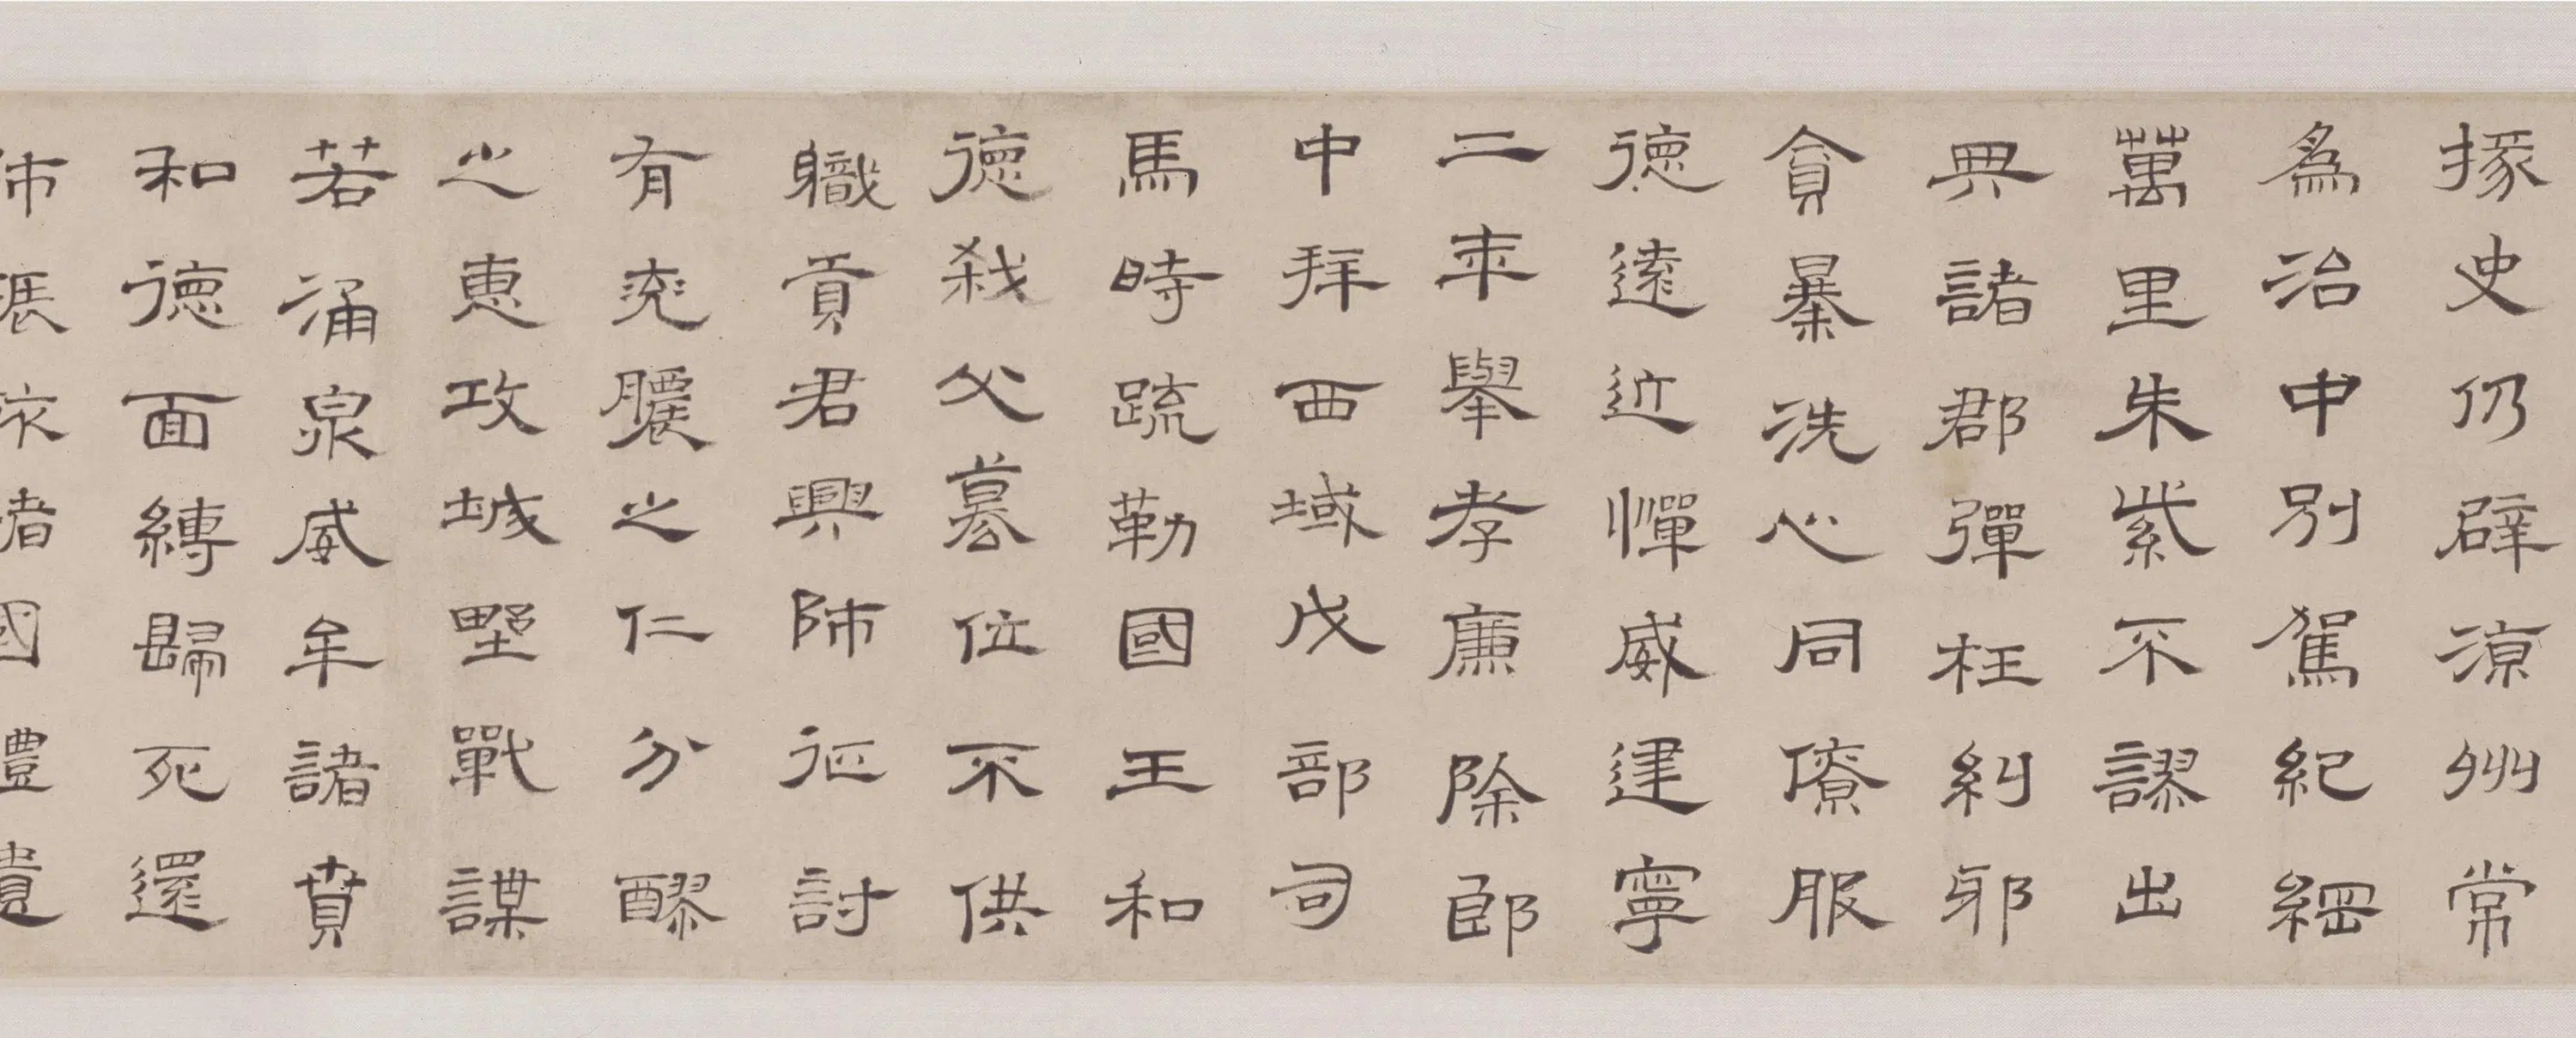 掾史仍辟涼州常
為治中別駕紀綱
萬里朱紫不謬出
典諸郡彈枉糾邪
貪暴洗心同僚服
德遠近憚威建寧
二年舉孝廉除郎
中拜西域戊部司
馬時疏勒國王和
德殺父篡位不供
職貢君興師征討
有兗膿之仁分醪
之惠攻城野戰謀
若涌泉威牟諸賁
和德面縛歸死還
師振旅諸國禮遺